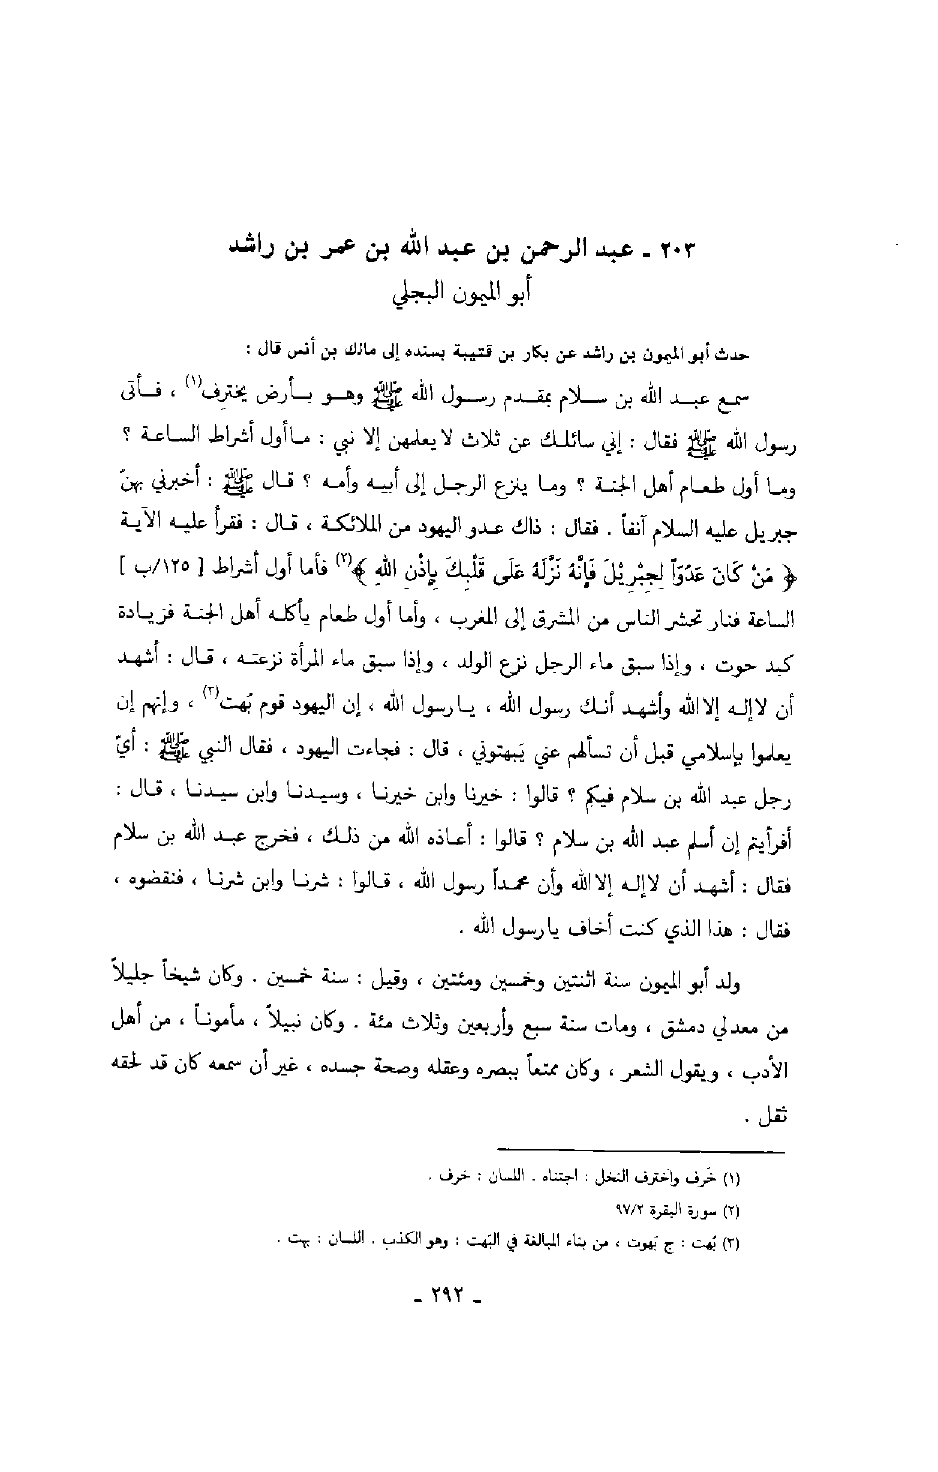 ٢٠٣ ـ عبد الرحمن بن عبد الله بن عمر بن راشد
أبو الميمون البجلي
حدث أبو الميمون بن راشد عن بكار بن قتيبة بسنده إلى مالك بن أنس قال :
سمع عبد الله بن سلام بمقدم رسول الله ﷺ وهو بأرض يخترف(١) ، فأتى
رسول الله ﷺ فقال : إني سائلك عن ثلاث لا يعلمهن إلا نبي : ما أول أشراط الساعة ؟
وما أول طعام أهل الجنة ؟ وما ينزع الرجل إلى أبيه وأمه ؟ قال ﷺ : أخبرني بهنّ
جبريل عليه السلام آنفاً . فقال : ذاك عدو اليهود من الملائكة ، قال : فقرأ عليه الآية
﴿ مَنْ كَانَ عَدُوّاً لِجِبْرِيْلَ فَإِنَّهُ نَزَّلَهُ عَلَى قَلْبِكَ بِإِذْنِ اللهِ ﴾(٢) فأما أول أشراط [ ١٢٥/ب ]
الساعة فنار تحشر الناس من المشرق إلى المغرب ، وأما أول طعام يأكله أهل الجنة فزيادة
كبد حوت ، وإذا سبق ماء الرجل نزع الولد ، وإذا سبق ماء المرأة نزعته ، قال : أشهد
أن لا إله إلا الله وأشهد أنك رسول الله ، يا رسول الله ، إن اليهود قوم بُهت(٣) ، وإنهم إن
يعلموا بإسلامي قبل أن تسألهم عني يَبهتوني ، قال : فجاءت اليهود ، فقال النبي ﷺ : أيّ
رجل عبد الله بن سلام فيكم ؟ قالوا : خيرنا وابن خيرنا ، وسيدنا وابن سيدنا ، قال :
أفرأيتم إن أسلم عبد الله بن سلام ؟ قالوا : أعاذه الله من ذلك ، فخرج عبد الله بن سلام
فقال : أشهد أن لا إله إلا الله وأن محمداً رسول الله ، قالوا : شرنا وابن شرنا ، فنقضوه ،
فقال : هذا الذي كنت أخاف يا رسول الله .
ولد أبو الميمون سنة اثنتين وخمسين ومئتين ، وقيل : سنة خمسين . وكان شيخاً جليلاً
من معدلي دمشق ، ومات سنة سبع وأربعين وثلاث مئة . وكان نبيلاً ، مأموناً ، من أهل
الأدب ، ويقول الشعر ، وكان ممتعاً ببصره وعقله وصحة جسده ، غير أن سمعه كان قد لحقه
ثقل .
(١) خَرف واخترف النخل : اجتناه . اللسان : خرف .
(٢) سورة البقرة ٩٧/٢
(٣) بُهت : ج بَهوت ، من بناء المبالغة في البَهت : وهو الكذب . اللسان : بهت .
ـ ٢٩٢ ـ